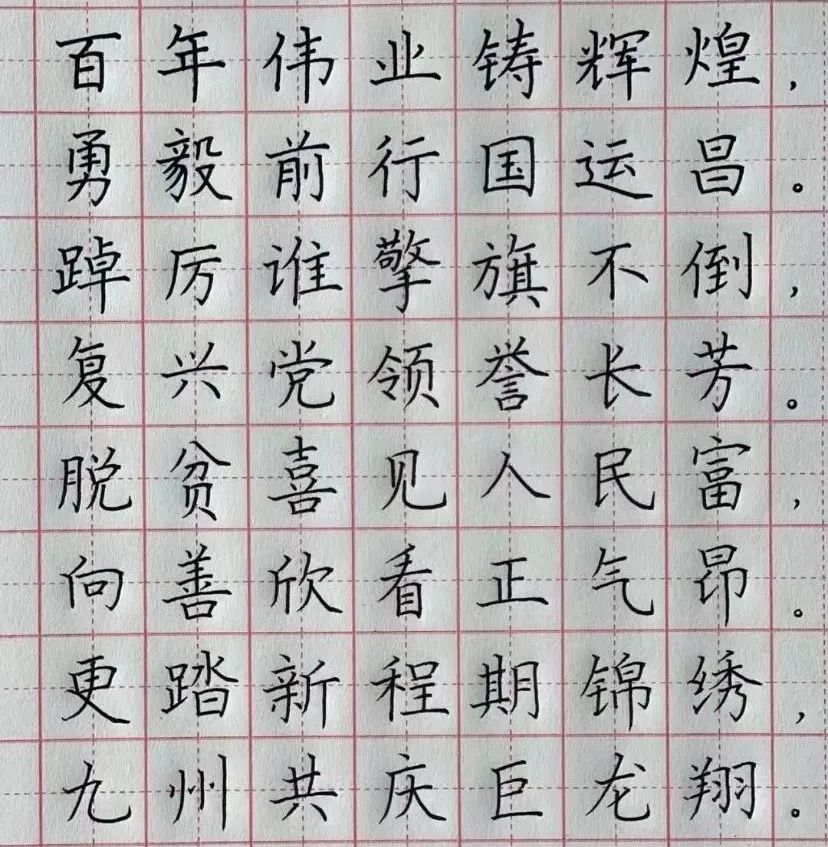 百年伟业铸辉煌，
勇毅前行国运昌。
踔厉谁擎旗不倒，
复兴党领誉长芳。
脱贫喜见人民富，
向善欣看正气昂。
更踏新程期锦绣，
九州共庆巨龙翔。